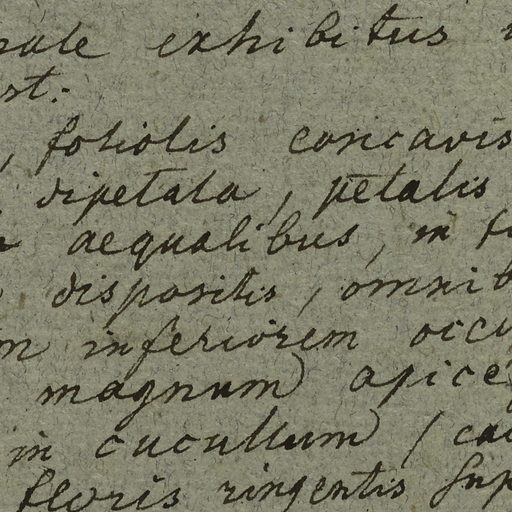 exhibitus
st:
, foliolis concavis
dipetala, petalis
aequalibus, in
dispositis, omnib
m inferiorem occu
magnum apice
in cucullum, ca
floris ringentis sup